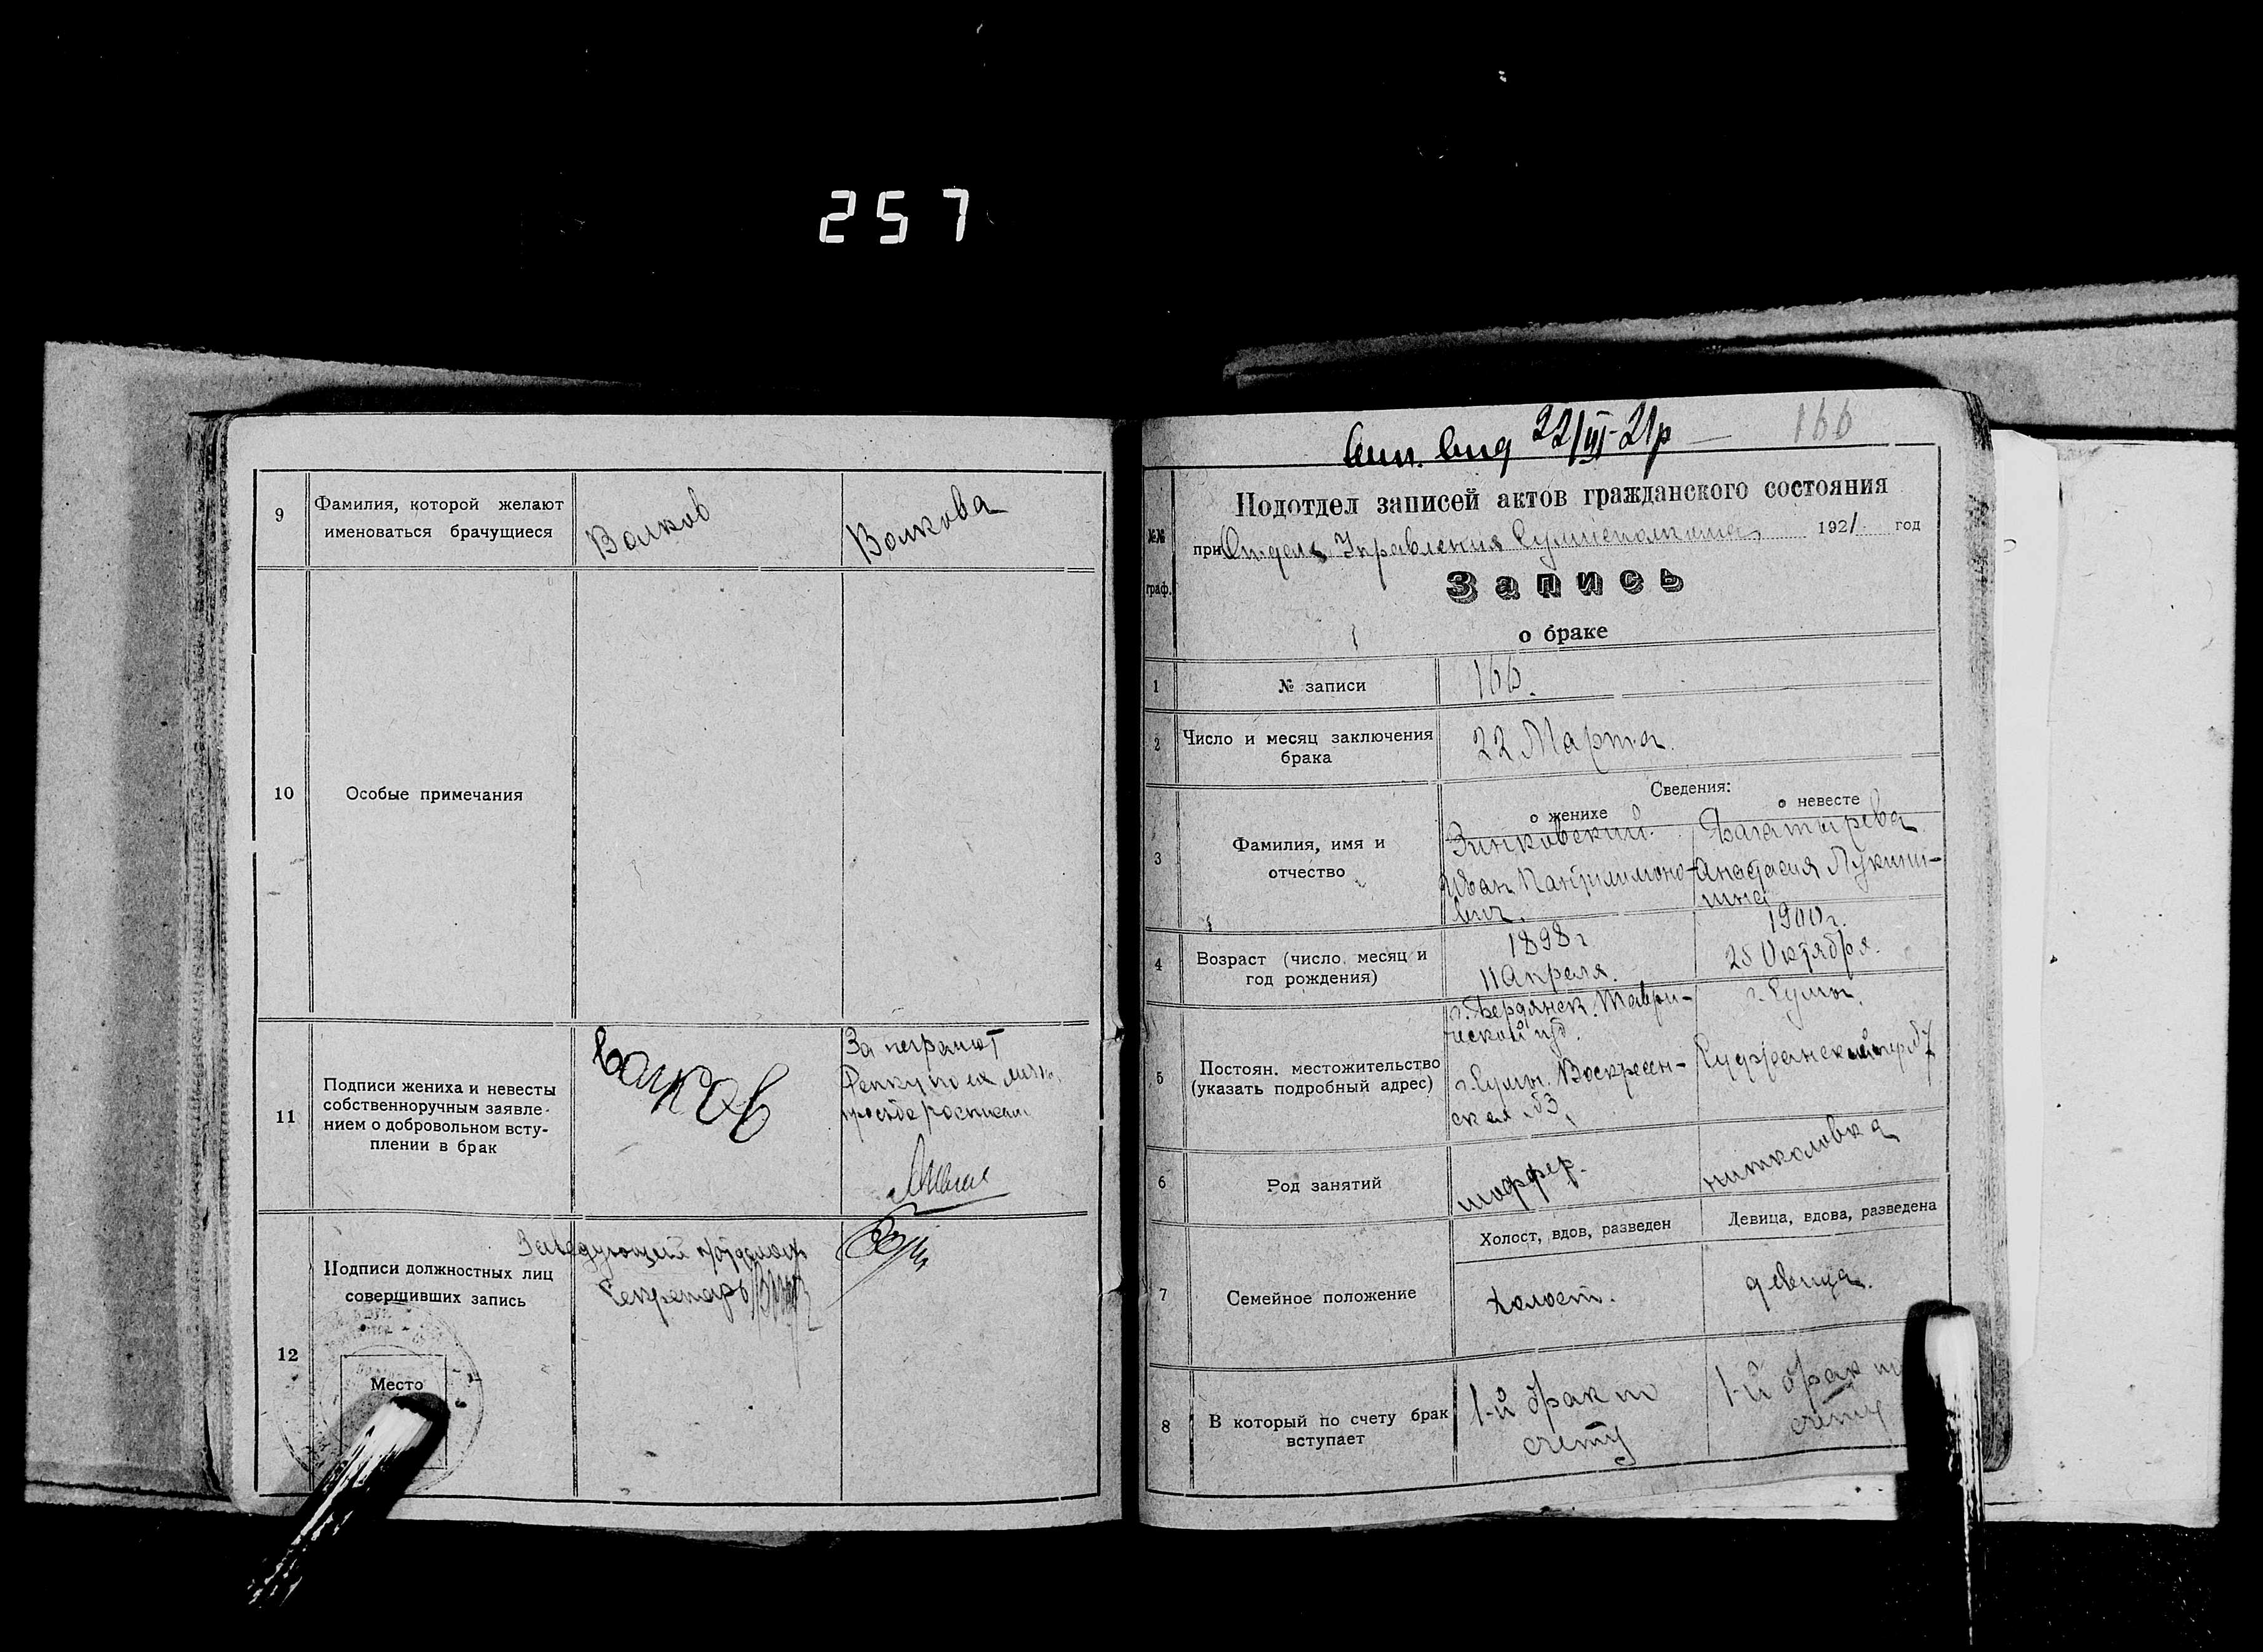 257
9
Фамилия, которой желают
именоваться брачущиеся
Волков
Волкова
10
Особые примечания
11
Подписи жениха и невесты
собственноручным заявле-
нием о добровольном всту-
плении в брак
Волков
За неграмот
просьбе росписал
12
Подписи должностных лиц
совершивших запись
Заведующий п/отделом
Секретарь
Место
22/III-21р
166
№№
граф.
Подотдел записей актов гражданского состояния
при Отделе Управления 1921 год
Запись
о браке
1
№ записи
166.
2
Число и месяц заключения
брака
22 Марта.
Сведения:
о женихе
о невесте
3
Фамилия, имя и
отчество
Зинковский.
Иван Пантилимоно-
вич.
Багатырева
Анастасия Лукини-
шна
4
Возраст (число, месяц и
год рождения)
1898 г
11 Апреля.
1900 г.
28 Октября.
5
Постоян. местожительство
(указать подробный адрес)
г. Бердянск. Таври-
ческой губ.
г. Сумы. Воскресен-
ская №3,
г. Сумы,
Суджанский пер №7
6
Род занятий
шоффер.
7
Семейное положение
Холост, вдов, разведен
Девица, вдова, разведена
холост.
девица.
8
В который по счету брак
вступает
1-й брак по
счету
1-й брак по
счету